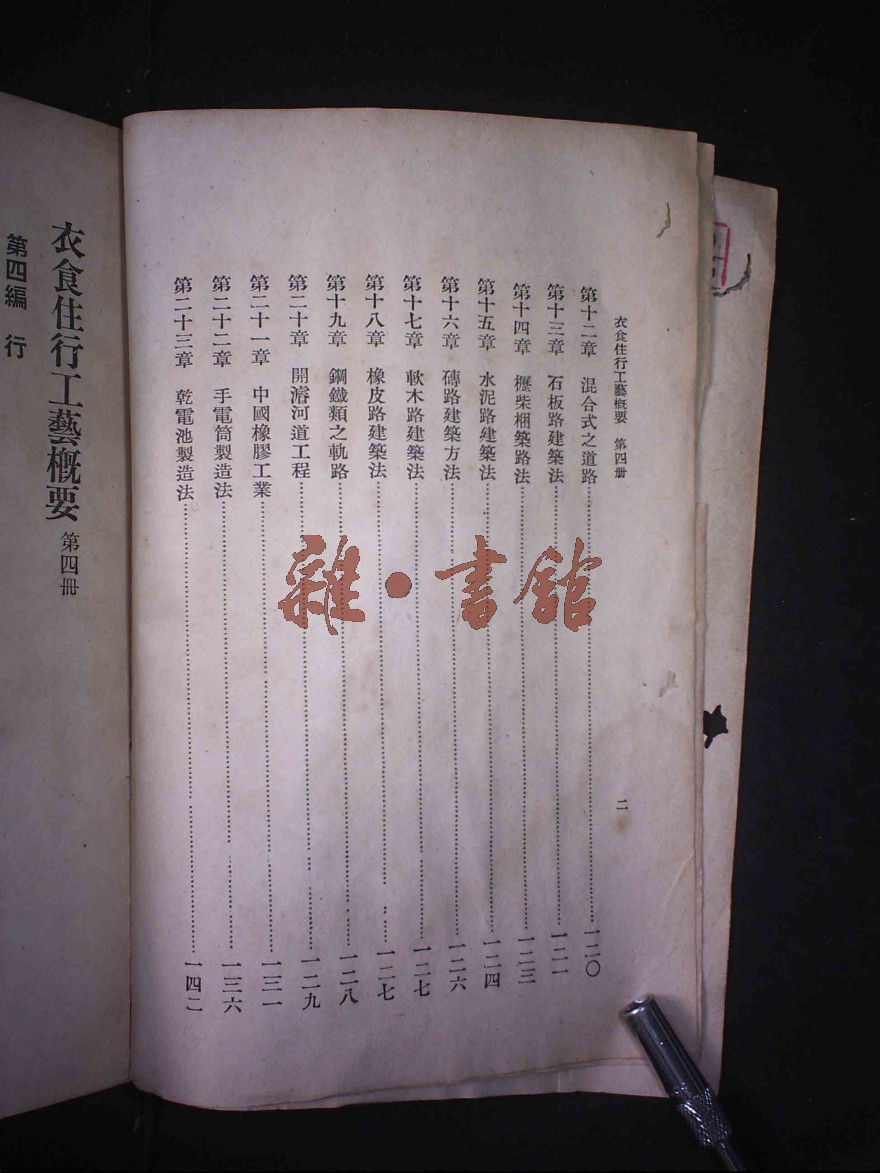 衣食住行工藝概要　第四册
二
第十二章　混合式之道路……一二〇
第十三章　石板路建築法……一二一
第十四章　櫪柴梱築路法……一二三
第十五章　水泥路建築法……一二四
第十六章　磚路建築方法……一二六
第十七章　軟木路建築法……一二七
第十八章　橡皮路建築法……一二七
第十九章　鋼鐵類之軌路……一二八
第二十章　開濬河道工程……一二九
第二十一章　中國橡膠工業……一三一
第二十二章　手電筒製造法……一三六
第二十三章　乾電池製造法……一四二
雜·書館
衣食住行工藝概要　第四冊
第四編　行